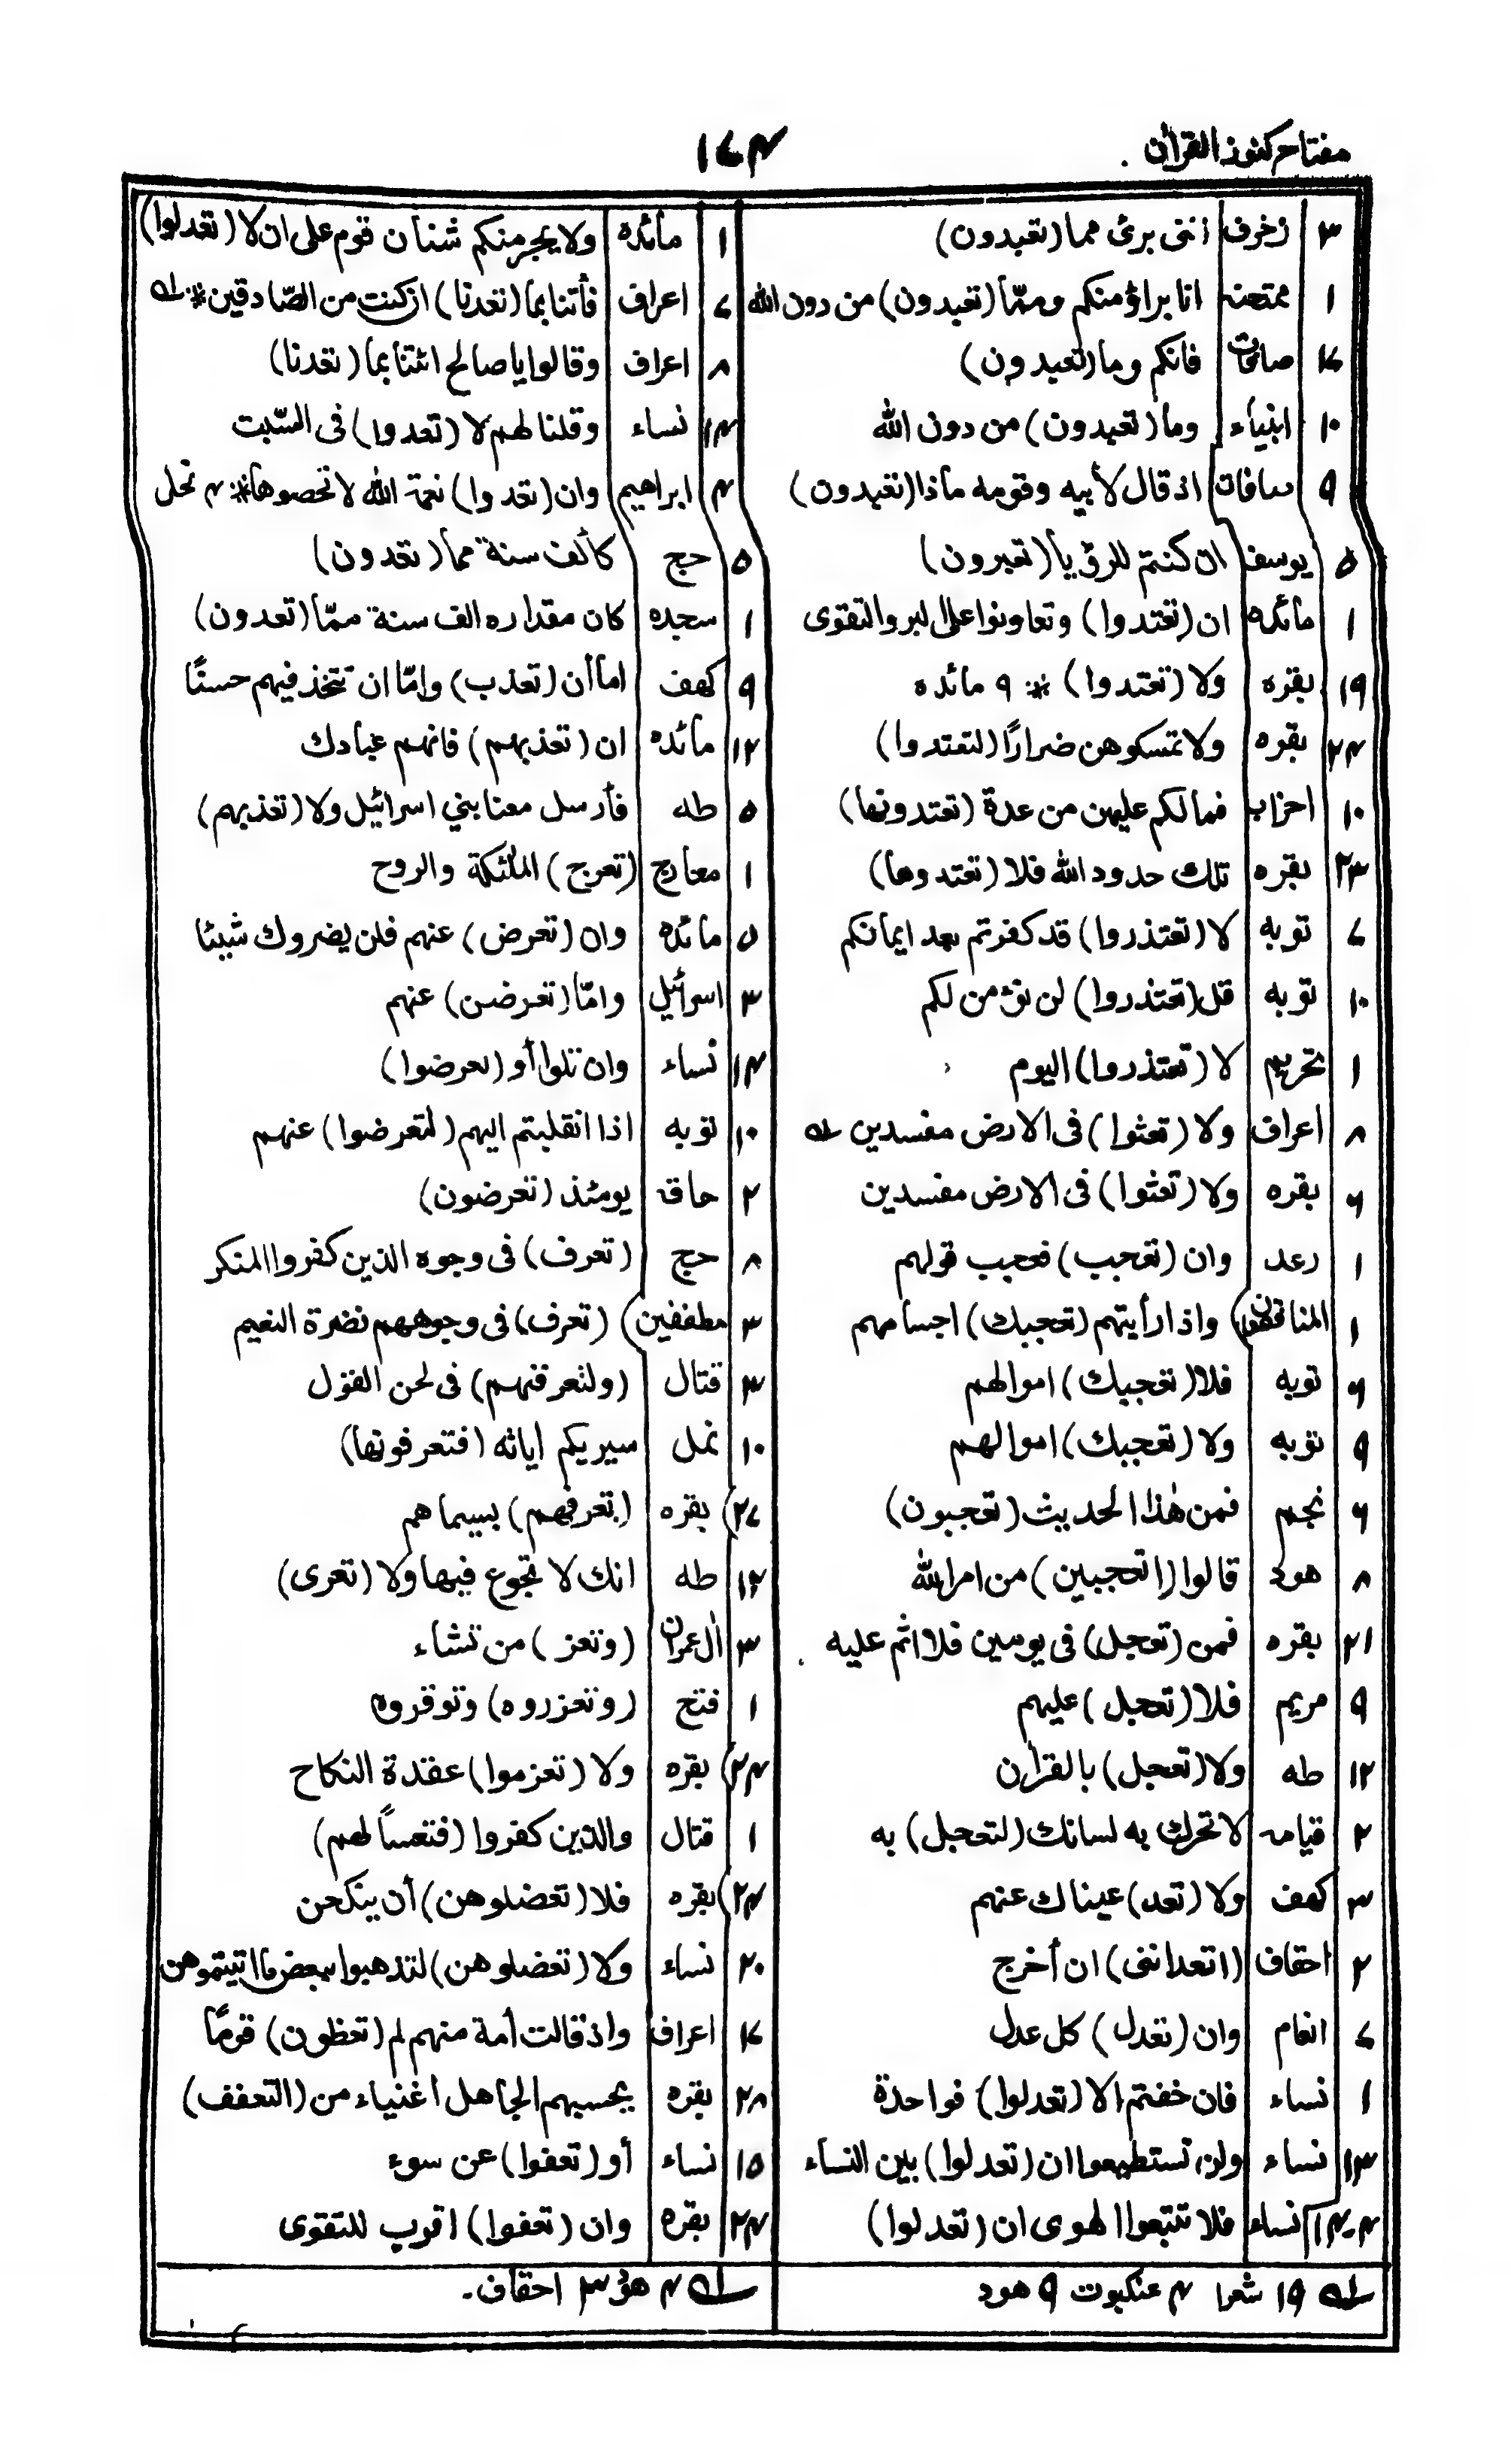 مفتاح كنوز القرأن
١٧٤
٣ زخرف اننى برئ مما (تعبدون)
١ ممتحنه انا براؤ منكم وممّا (تعبدون) من دون الله
صافات فانكم وما (تعبدون)
١٠ انبياء وما (تعبدون) من دون الله
٩ صافات اذ قال لأبيه وقومه ماذا (تعبدون)
٥ يوسف ان كنتم للرؤيا (تعبرون)
١ مائده ان (تعتدوا) وتعاونوا على البر والتقوى
١٩ بقره ولا (تعتدوا) * ٩ مائده
٢٤ بقره ولا تمسكوهن ضرارًا (لتعتدوا)
١٠ احزاب فمالكم عليهن من عدة (تعتدونها)
٢٣ بقره تلك حدود الله فلا (تعتدوها)
٧ توبه لا (تعتذروا) قد كفرتم بعد ايمانكم
١٠ توبه قل (تعتذروا) لن نؤمن لكم
١ تحريم لا (تعتذروا) اليوم
٨ اعراف ولا (تعثوا) فى الارض مفسدين له
٦ بقره ولا (تعثوا) فى الارض مفسدين
١ رعد وان (تعجب) فعجب قولهم
١ المنافقون واذا رأيتهم (تعجبك) اجسامهم
٦ توبه فلا (تعجبك) اموالهم
٩ توبه ولا (تعجبك) اموالهم
٦ نجم فمن هٰذا الحديث (تعجبون)
٨ هود قالوا (اتعجبين) من امر الله
٢١ بقره فمن (تعجل) فى يومين فلا اثم عليه
٩ مريم فلا (تعجل) عليهم
١٢ طه ولا (تعجل) بالقرأن
٢ قيامه لا تحرك به لسانك (لتعجل) به
٣ كهف ولا (تعد) عيناك عنهم
٢ احقاف (اتعداننى) ان أخرج
٧ انعام وان (تعدل) كل عدل
١ نساء فان خفتم الا (تعدلوا) فواحدة
١٣ نساء ولن تستطيعوا ان (تعدلوا) بين النساء
نساء فلا تتبعوا الهوى ان (تعدلوا)
له ١٩ شعرا ٤ عنكبوت ٩ هود
١ مائده ولا يجرمنكم شنأن قوم على ان لا (تعدلوا)
٧ اعراف فأتنا بما (تعدنا) ان كنت من الصّادقين * له
٨ اعراف وقالوا يا صالح ائتنا بما (تعدنا)
١٤ نساء وقلنا لهم لا (تعدوا) فى السّبت
٤ ابراهيم وان (تعدوا) نعمة الله لا تحصوها * ٤ نحل
٥ حج كألف سنة مما (تعدون)
١ سجده كان مقداره الف سنة ممّا (تعدون)
٩ كهف اما أن (تعذب) وامّا ان تتخذ فيهم حسنًا
١٢ مائده ان (تعذبهم) فانهم عبادك
٥ طه فأرسل معنا بني اسرائيل ولا (تعذبهم)
١ معارج (تعرج) الملئكة والروح
٥ مائده وان (تعرض) عنهم فلن يضروك شيئا
٣ اسرائيل وامّا (تعرضن) عنهم
١٤ نساء وان تلوا أو (تعرضوا)
١٠ توبه اذا انقلبتم اليهم (لتعرضوا) عنهم
٢ حاقه يومئذ (تعرضون)
٨ حج (تعرف) فى وجوه الذين كفروا المنكر
٣ مطففين (تعرف) فى وجوههم نضرة النعيم
٣ قتال (ولتعرفنهم) فى لحن القول
١٠ نمل سيريكم اياته (فتعرفونها)
٢٧ بقره (تعرفهم) بسيماهم
١٢ طه انك لا تجوع فيها ولا (تعرى)
٣ أل عمران (وتعز) من تشاء
١ فتح (وتعزروه) وتوقروه
٢٤ بقره ولا (تعزموا) عقدة النكاح
١ قتال والذين كفروا (فتعساً لهم)
٢٤ بقره فلا (تعضلوهن) أن ينكحن
٢٠ نساء ولا (تعضلوهن) لتذهبوا ببعض ما اتيتموهن
اعراف واذ قالت أمة منهم لم (تعظون) قومًا
٢٨ بقره يحسبهم الجاهل اغنياء من (التعفف)
١٥ نساء أو (تعفوا) عن سوء
٢٤ بقره وان (تعفوا) اقرب للتقوى
له ٤ هود ٣ احقاف.